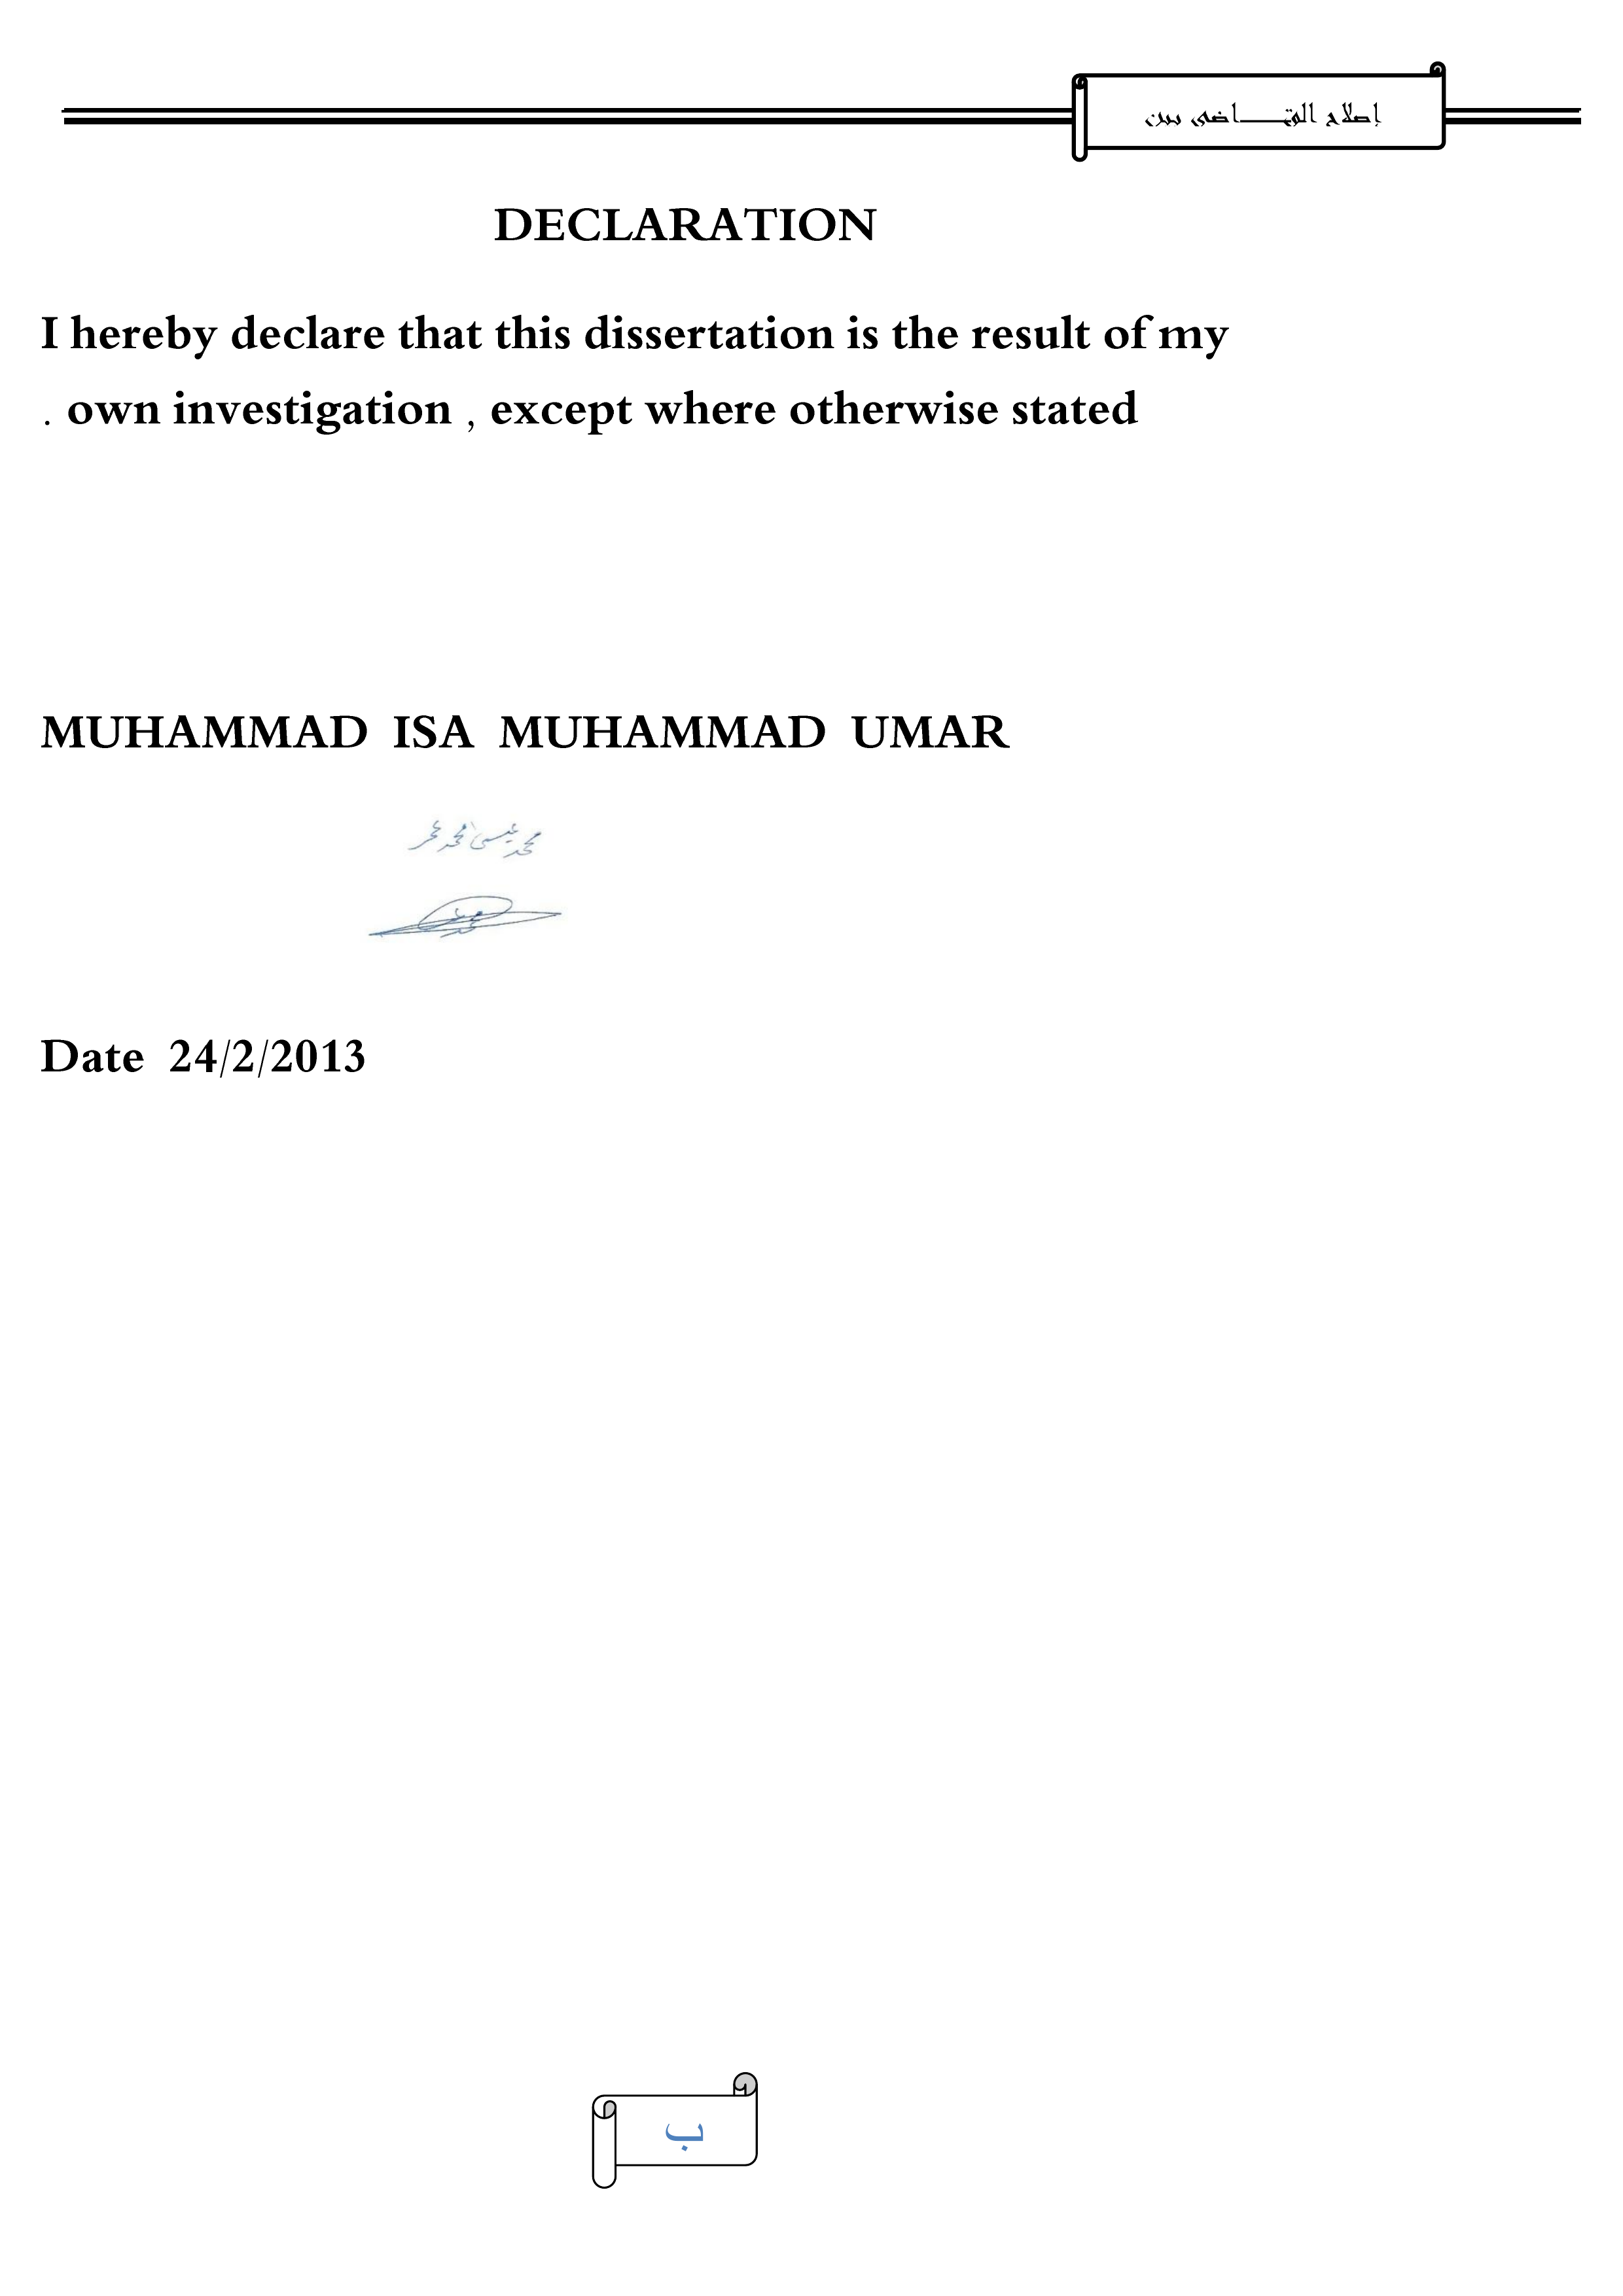 إصلاح القـــاضى سن
DECLARATION
I hereby declare that this dissertation is the result of my
. own investigation , except where otherwise stated
MUHAMMAD ISA MUHAMMAD UMAR
محمد عيسى محمد عمر
Date 24/2/2013
ب